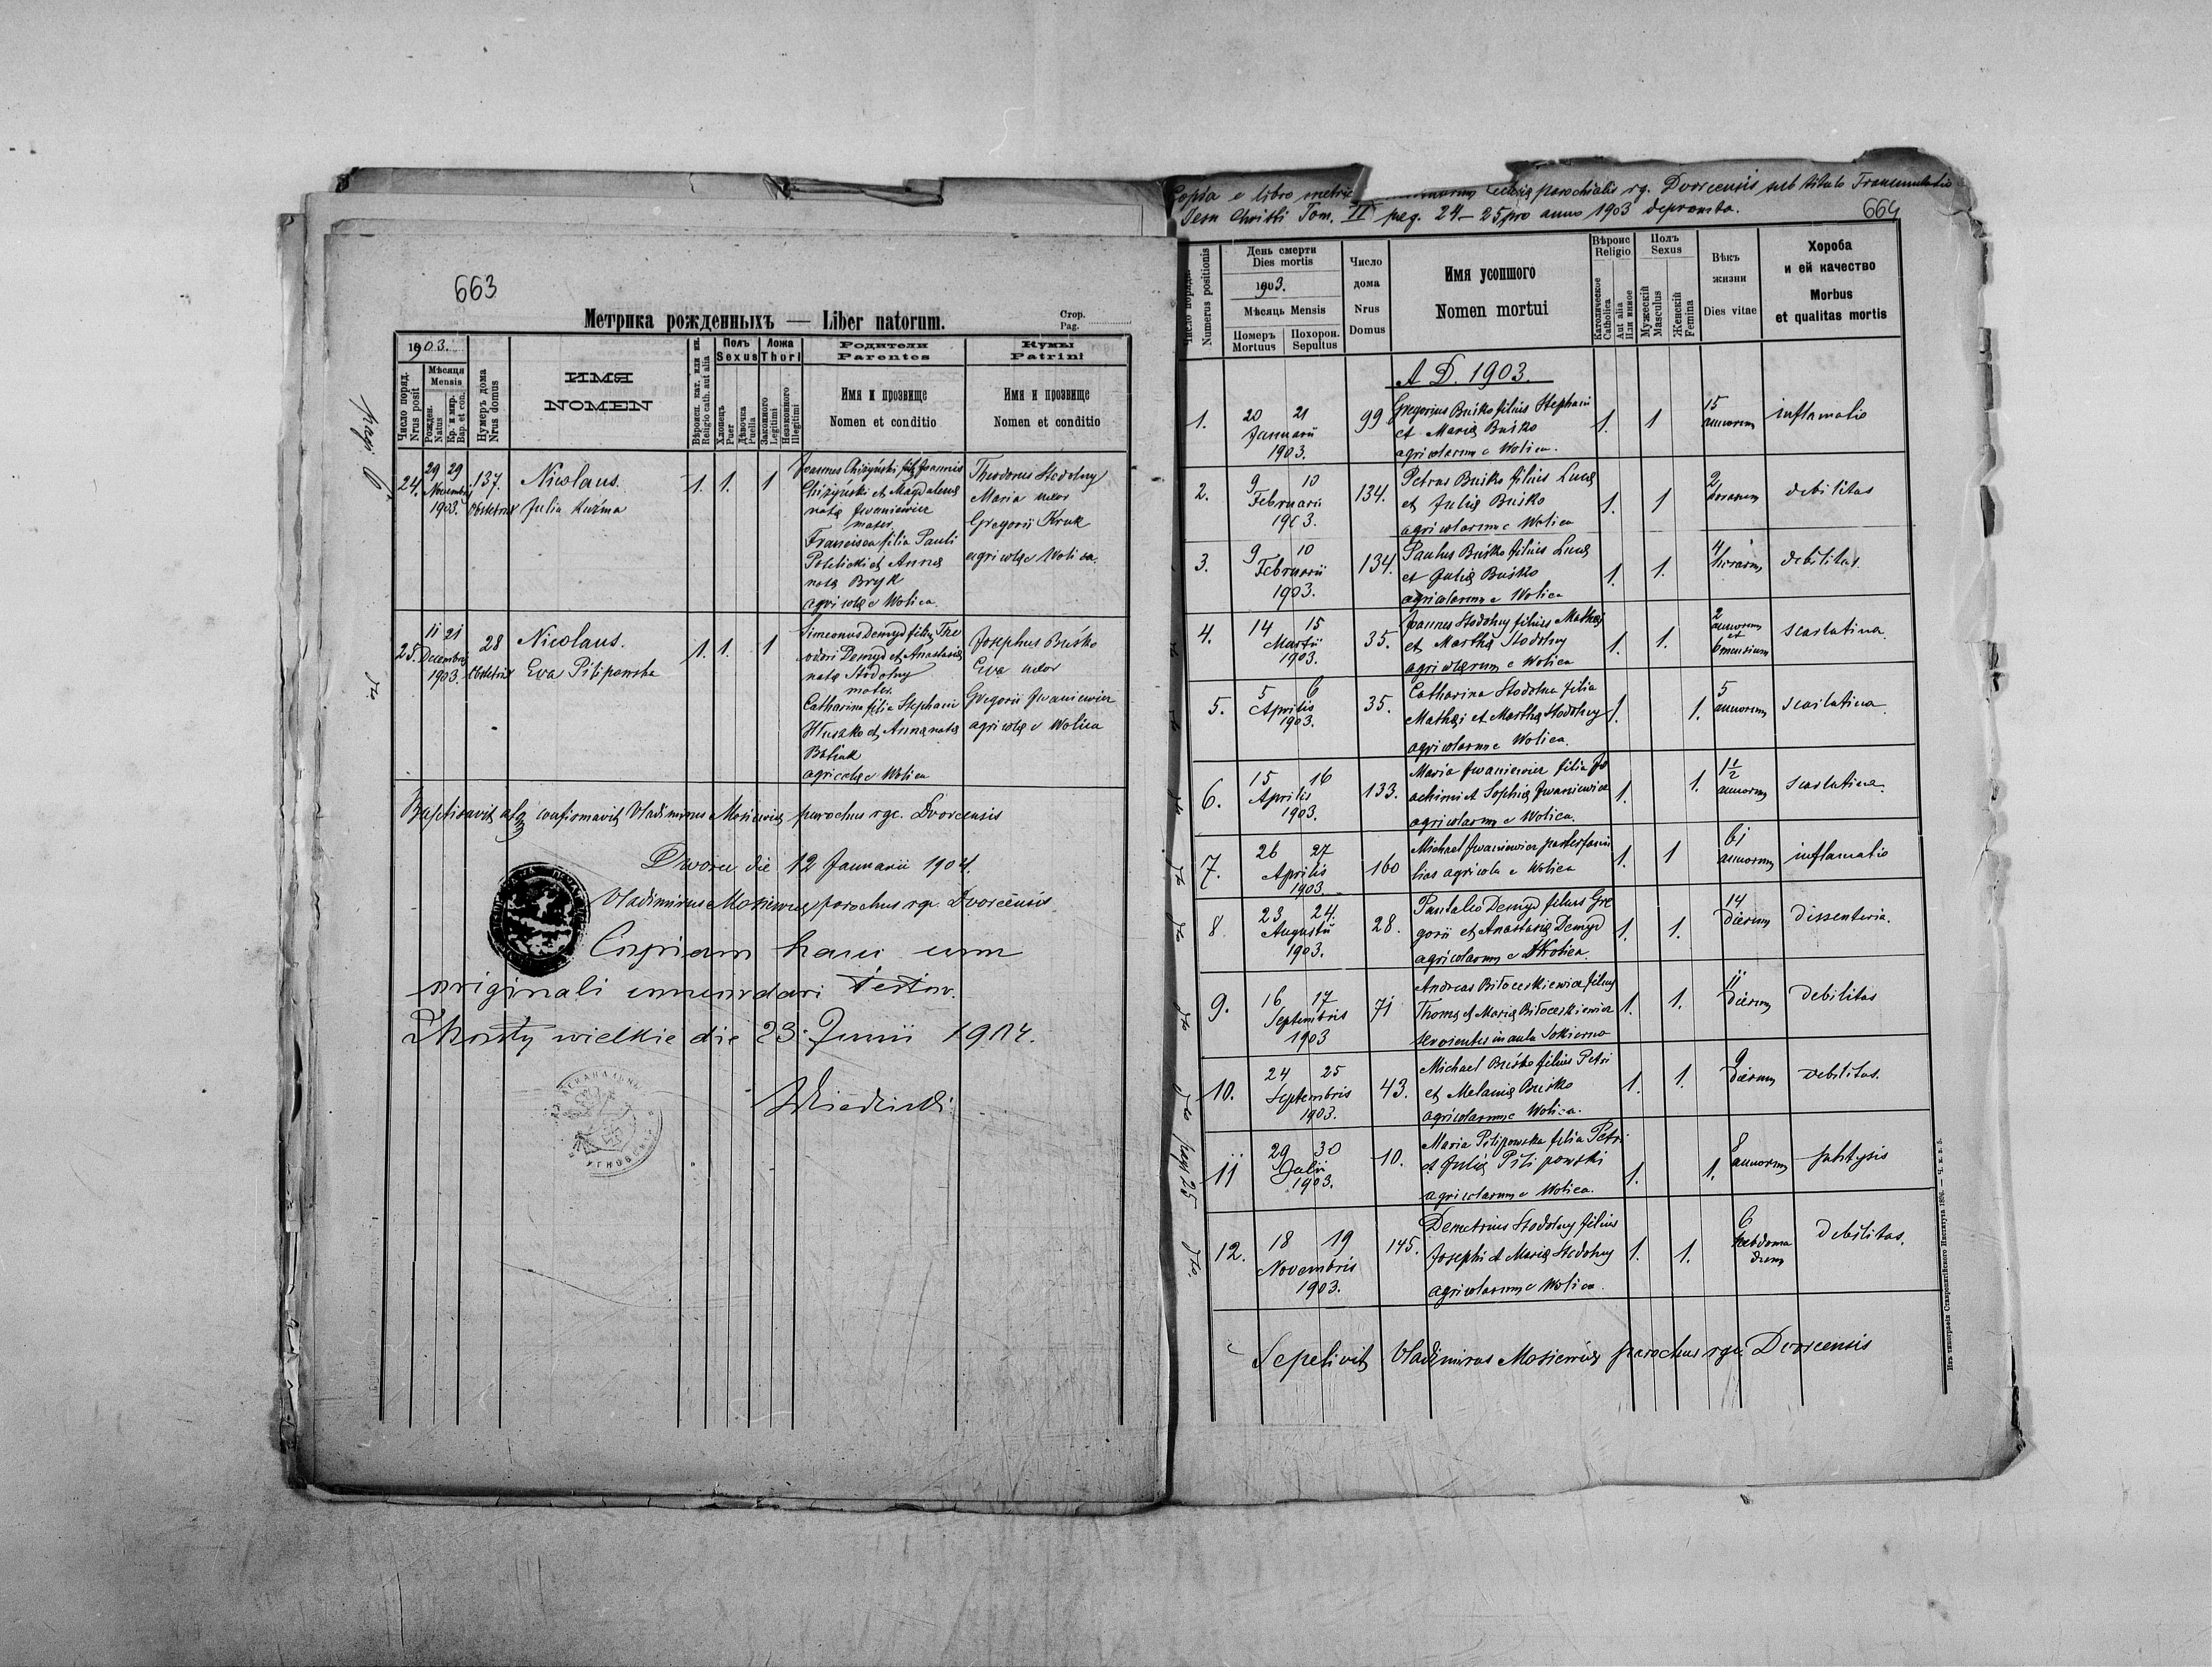 663
Метрика рожденныхъ — Liber natorum.
Стор.
Pag.
1903.
Число поряд.
Nrus posit
Мѣсяця
Mensis
Рожден.
Natus
Кр. и мир.
Bap. et con.
Нумеръ дома
Nrus domus
ИМЯ
NOMEN
Вѣроисп. кат. или ин.
Religio cath. aut alia
Полъ
Sexus
Хлопець
Puer
Дѣвочка
Puella
Ложа
Thori
Законного
Legitimi
Незаконного
Illegitimi
Родители
Parentes
Имя и прозвище
Nomen et conditio
Кумы
Patrini
Имя и прозвище
Nomen et conditio
pag 6
24.
29 29
Novembris
1903.
137.
Obstetrix
Nicolaus.
Julia Kuźma
1. 1. 1
Joannes Chiżyński fil. Joannis
Chiżyński et Magdalenę
natę Jwaniewicz
mater.
Francisca filia Pauli
et Annę
natę Bryk
agricolę e Wolica.
Theodorus Stodolny
Maria uxor
Gregorii Kruk
agricolę e Wolica.
25.
11 21
Decembris
1903.
28
Obstetrix
Nicolaus.
Eva Pilipowska
1. 1. 1
Simeonus Demyd filius The
odori Demyd et Anastasię
natę Stodolny
mater.
Catharina filia Stephani
Hluszko et Annę natę
agricolę e Wolica
Josephus Buśko
Eva uxor
Gregorii Jwaniewicz
agricolę e Wolica
Baptisavit atq confirmavit Vladimirus Mosiewicz parochus rgc. Dvorcensis
Dworce die 12 Januarii 1904.
Vladimirus Mosiewicz parochus rgc. Dvorcensis
Copiam hanc cum
originali concordari testor.
Mosty wielkie die 23 Junii 1904.
Copia e libro metric ecclesię parochialis rg. Dvorcensis sub titulo Transmutatio
Jesu Christi Tom. II pag. 24–25 pro anno 1903 deprompta.
664
Число порядк.
Numerus positionis
День смерти
Dies mortis
1903.
Мѣсяць Mensis
Померъ
Mortuus
Похорон.
Sepultus
Число
дома
Nrus
Domus
Имя усопшого
Nomen mortui
Вѣроис
Religio
Католическое
Catholica
Aut alia
Или инное
Полъ
Sexus
Мужескій
Masculus
Женскій
Femina
Вѣкъ
жизни
Dies vitae
Хороба
и ей качество
Morbus
et qualitas mortis
A. D. 1903.
1.
20 21
Januarii
1903.
99
Gregorius Buśko filius Stephani
et Marię Buśko
agricolarum e Wolica.
1. 1
15
annorum
inflamatio
2.
9 10
Februarii
1903.
134.
Petrus Buśko filius Lucę
et Julię Buśko
agricolarum e Wolica
1. 1
2
horarum
debilitas
3.
9 10
Februarii
1903.
134.
Paulus Buśko filius Lucę
et Julię Buśko
agricolarum e Wolica
1. 1.
4
horarum
debilitas.
4.
14 15
Martii
1903.
35.
Joannes Stodolny filius Mathęi
et Marthę Stodolny
agricolarum e Wolica
1. 1.
2
annorum
et
6 mensium
scarlatina.
5.
5 6
Aprilis
1903.
35.
Catharina Stodolna filia
Mathęi et Marthę Stodolny
agricolarum e Wolica.
1. 1.
5
annorum
scarlatina.
6.
15 16
Aprilis
1903.
133.
Maria Jwaniewicz filia Jo
achimi et Sophię Jwaniewicz
agricolarum e Wolica.
1. 1.
1 1/2
annorum
scarlatina.
7.
26 27
Aprilis
1903.
160
Michael Jwaniewicz paterfami
lias agricola e Wolica
1. 1
61
annorum
inflamatio
8
23 24.
Augusti
1903.
28.
Pantaleo Demyd filius Gre
gorii et Anastasię Demyd
agricolarum e Wolica.
1. 1.
14
dierum
dissenteria.
9.
16 17
Septembris
1903
71
Andreas Biłoceskiewicz filius
Thomę et Marię Biłoceskiewicz
servientes in aula Sokierna
1. 1.
11
dierum
debilitas
10.
24 25
Septembris
1903.
43.
Michael Buśko filius Petri
et Melanię Buśko
agricolarum e Wolica.
1. 1.
9
dierum
debilitas.
11
29 30
Julii
1903.
10.
Maria Pilipowska filia Petri
et Julię Pilipowski
agricolarum e Wolica.
1. 1.
8
annorum
phtysis
pag 25
12.
18 19
Novembris
1903.
145.
Demetrius Stodolny filius
Josephi et Marię Stodolny
agricolarum e Wolica.
1. 1.
6
hebdoma
dum
debilitas.
Sepelivit Vladimirus Mosiewicz parochus rgc. Dvorcensis
Изъ типографіи Ставропигійского Института 1896. — Ч. к. 5.